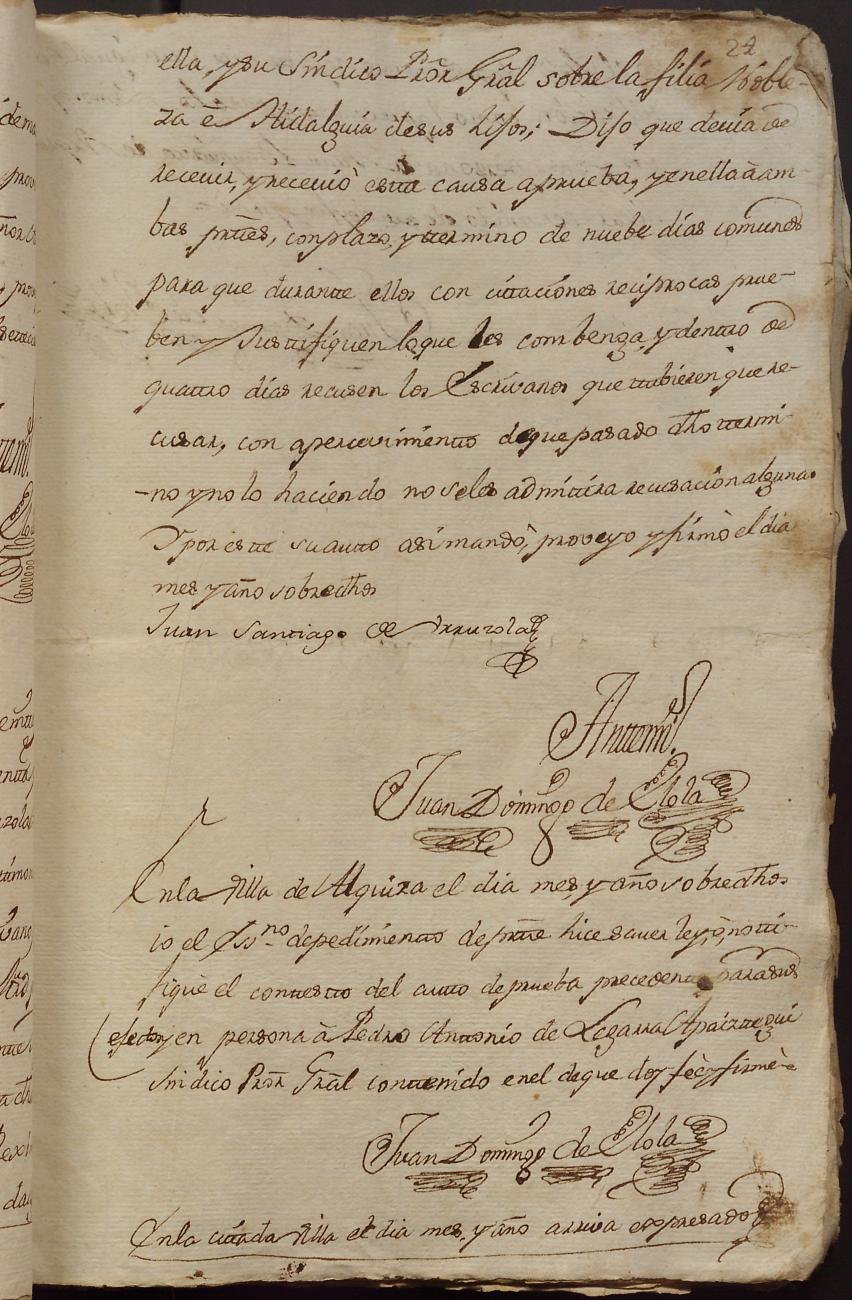 24
ella, y su Sindico Pror Gral sobre la filia Noble-
za e Hidalguia de sus hijos; Dijo que devia de
recevir, y recevio esta causa a prueba, y en ella à am
bas prtes, con plazo, y termino de nuebe dias comunes
para que durante ellos con cittaciones reciprocas prue-
ben y Justtifiquen lo que les combenga, y dentro de
quattro dias recusen los Escrivanos que ttubieren que re-
cusar, con apercivimientto de que pasado dho ttermi-
-no y no lo haciendo no se les admittira recusacion alguna.
Y por estte su autto asi mandò, proveyo y firmò el dia
mes y año sobredhos
Juan Santiago de Urruzola
Anttemi.
Juan Domingo de Elola
En la Villa de Alquiza el dia mes, y año sobredhos
io el Essno. de pedimientto de partte hice saver ley, ò, notti-
fiquè el conttestto del autto de prueba precedentte para sus
efectos en persona à Pedro Anttonio de Legarra Apaizttegui
Sindico Pror Gral conttenido en el de que doy feè y firmè=
Juan Domingo de Elola
En la cittada Villa el dia mes, y año arriva expresados